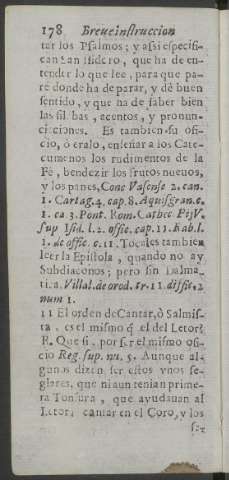 178 Breue instruccion
tar los Psalmos; y assi especifi-
can San Isidero, que ha de en-
tender lo que lee, para que pa-
re donde ha de parar, y dè buen
sentido, y que ha de saber bien
las silabas, acentos, y pronun-
ciaciones. Es tambien su ofi-
cio, ò eralo, enseñar a los Cate-
cumenos los rudimentos de la
Fè, bendezir los frutos nueuos,
y los panes, Conc Vasense 2. can.
1. Cartag. 4. cap. 8. Aquisgran. c.
1. ca 3. Pont. Rom. Cathec Pij V.
sup Isid. l. 2. offic. cap. 11. Rab. l.
1. de offic. c. 11. Tocales tambien
leer la Epistola, quando no ay
Subdiaconos; pero sin Dalma-
tica. Villal. de ord. tr. 11. diffic. 2
num 1.
11 El orden de Cantar, ò Salmis-
ta, es el mismo q̃ el del Letor?
R. Que si, por ser el mismo ofi-
cio Reg. sup. nu. 5. Aunque al-
gunos dizen ser estos vnos se-
glares, que ni aun tenian prime-
ra Tonsura, que ayudauan al
Letor; cantar en el Coro, y los